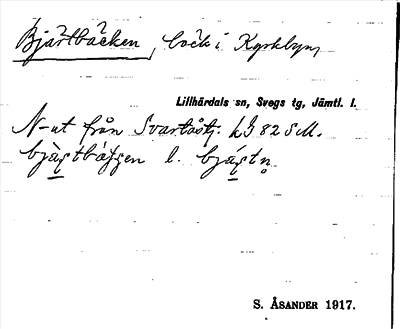 Bjärtbäcken, bäck i Kyrkbyn,
Lillhärdals sn, Svegs tg, Jämtl. l.
N-ut från Svartåstj. kJ 82 SM.
bjæ̀ştbæ̀ʃʃen l. bjæ̀ştn̥
S. ÅSANDER 1917.